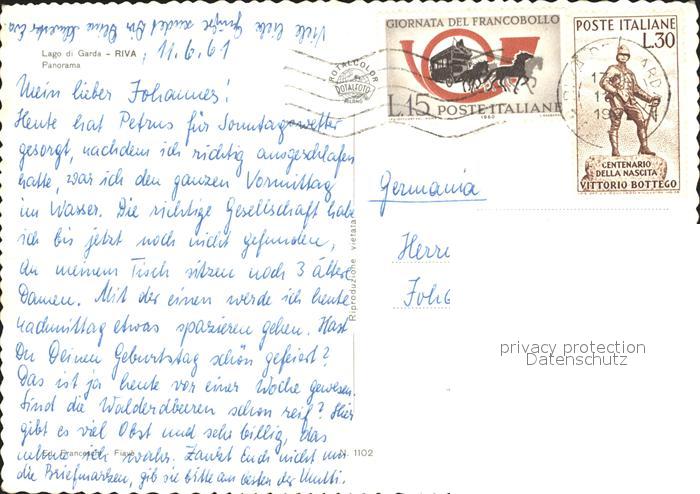 Viele liebe Grüße sendet Dir Deine
Lago di Garda - RIVA
Panorama
, 11.6.61
Mein lieber Johannes!
Heute hat Petrus für Sonntagswetter
gesorgt, nachdem ich richtig ausgeschlafen
hatte, war ich den ganzen Vormittag
im Wasser. Die richtige Gesellschaft habe
ich bis jetzt noch nicht gefunden,
an meinem Tisch sitzen noch 3 ältere
Damen. Mit der einen werde ich heute
nachmittag etwas spazieren gehen. Hast
Du Deinen Geburtstag schön gefeiert?
Das ist ja heute vor einer Woche gewesen.
Sind die Walderdbeeren schon reif? Hier
gibt es viel Obst und sehr billig, das
nehme ich wahr. Zankt Euch nicht um
die Briefmarken, gib sie bitte am besten der Mutti.
N. 1102
Riproduzione vietata
ROTALCOLOR
ROTALFOTO
MILANO
GIORNATA DEL FRANCOBOLLO
L.15 POSTE ITALIANE
1960
POSTE ITALIANE
L.30
CENTENARIO
DELLA NASCITA
VITTORIO BOTTEGO
Germania
Herrn
Joh
privacy protection
Datenschutz